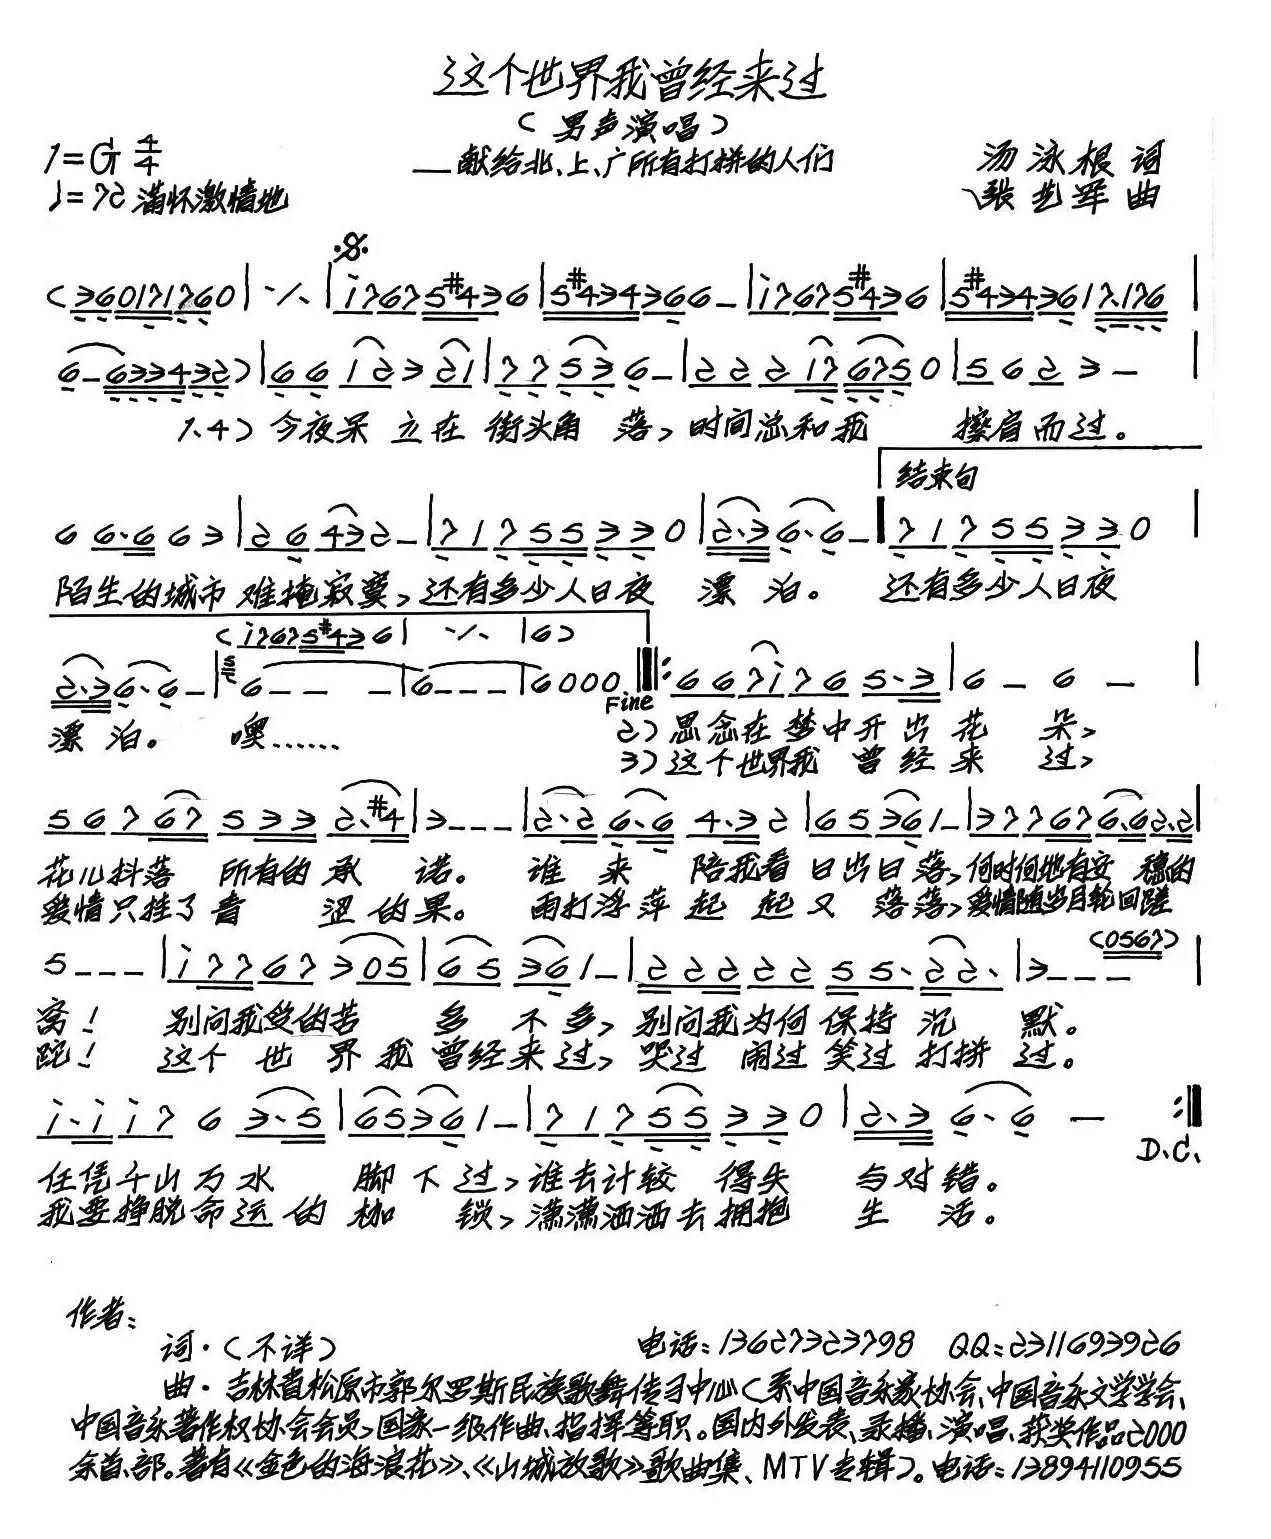 这个世界我曾经来过
(男声演唱)
1=G 4/4
——献给北、上、广所有打拼的人们
汤泳根 词
♩=72 满怀激情地
张艺军 曲
(3601717 60| ·/· |i7675#436|5#434366-|i7675#436|5#4343617.176|
6-6334 32)|6612321|77536-|222176750|5623-|
1.4) 今夜呆立在街头角落, 时间总和我擦肩而过。
结束句
66·663|26432-|7175533 0|2·36·6-|7175533 0|
陌生的城市难掩寂寞, 还有多少人日夜漂泊。 还有多少人日夜
(i7675#436| ·/· |6)
2·36·6-|6---|6---|6000 :|||:667i765·3|6-6-|
Fine
漂泊。 噢…… 2) 思念在梦中开出花朵,
3) 这个世界我曾经来过,
56767533 2·#4|3---|2·26·64·32|65361-|377676·62·2|
花儿抖落所有的承诺。 谁来陪我看日出日落, 何时何地有安稳的
爱情只挂了青涩的果。 雨打浮萍起起又落落, 爱情随岁月轮回蹉
(0567)
5---|i7767305|65361-|2222255·22·|3---|
窝! 别问我受的苦多不多, 别问我为何保持沉默。
跎! 这个世界我曾经来过, 哭过闹过笑过打拼过。
i·ii763·5|65361-|7175533 0|2·36·6-:||
D.C.
任凭千山万水脚下过, 谁去计较得失与对错。
我要挣脱命运的枷锁, 潇潇洒洒去拥抱生活。
作者:
词·(不详) 电话:13627323798 QQ:2311693926
曲·吉林省松原市郭尔罗斯民族歌舞传习中心(系中国音乐家协会、中国音乐文学学会、
中国音乐著作权协会会员,国家一级作曲、指挥等职。国内外发表、录播、演唱、获奖作品2000
余首、部。著有《金色的海浪花》、《山城放歌》歌曲集、MTV专辑)。电话:13894110955